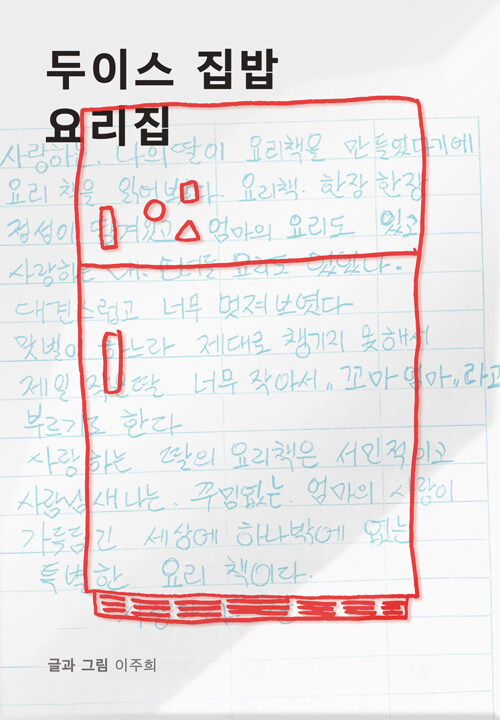 두이스 집밥
요리집
사랑하는 나의딸이 요리책을 만들었다기에
요리 책을 읽어보았다 요리책. 한장 한장
정성이 담겨있고 엄마의 요리도 있고
사랑하는 내. 손녀들 요리도 있었다.
대견스럽고 너무 멋져보엿다
맞벌이 하느라 제대로 챙기지 못해서
제일 작은딸 너무 작아서 „꼬마엄마„라고
부르기도 한다
사랑하는 딸의 요리책은 서민적이고
사람냄새나는. 꾸밈없는. 엄마의 사랑이
가득담긴 세상에 하나밖에 없는
특별한 요리 책이다.
글과 그림 이주희